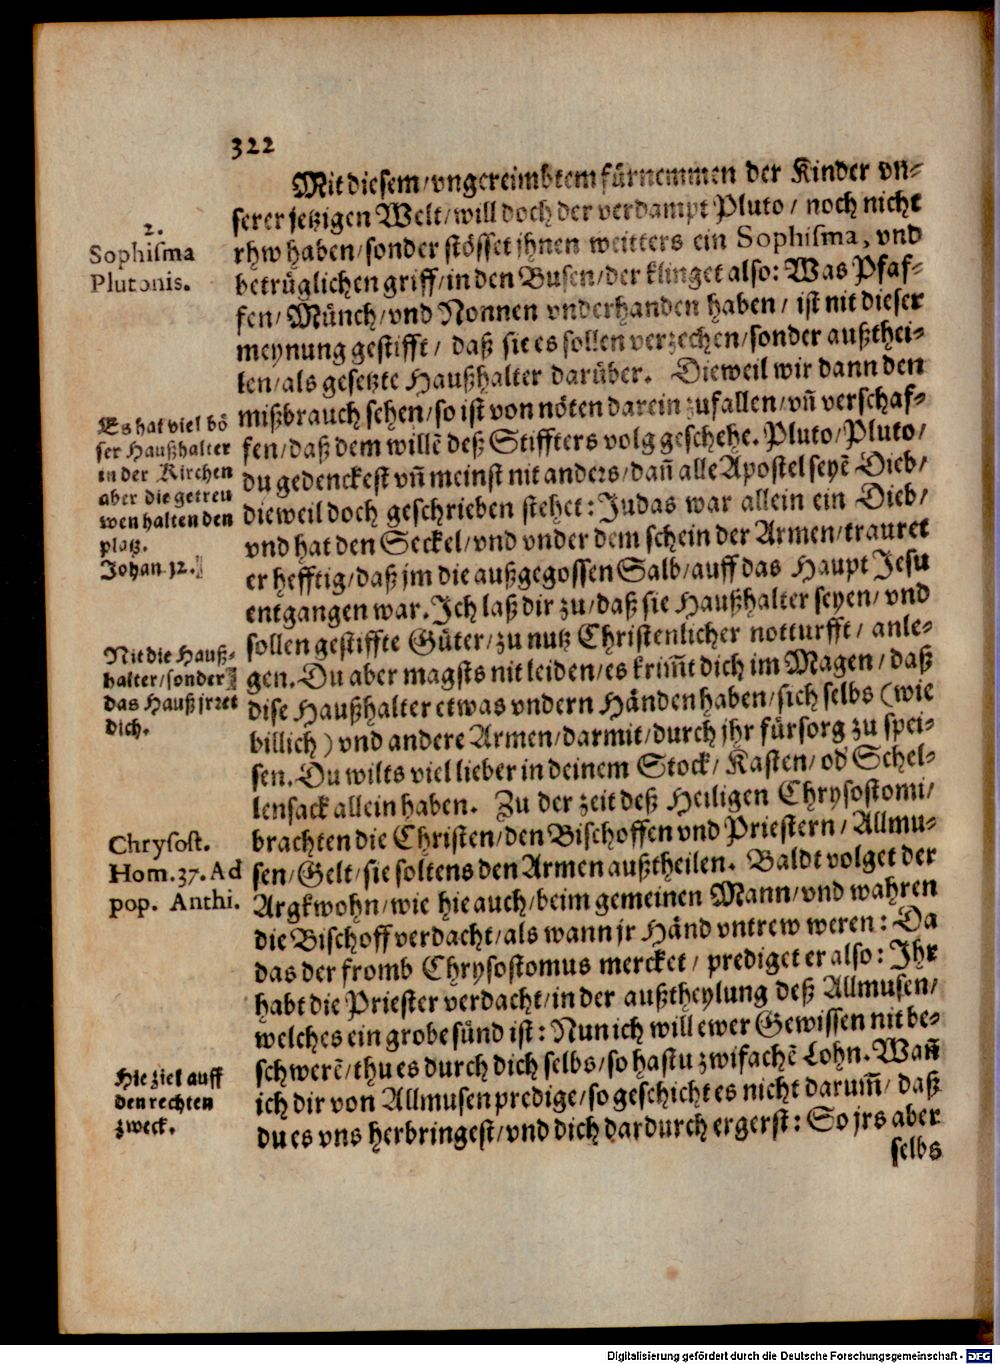 322
Mit diesem/vngereimbtem fürnemmen der Kinder vn-
serer jetzigen Welt/will doch der verdampt Pluto/ noch nicht
rhw haben/sonder stösset jhnen weitters ein Sophisma, vnd
betrüglichen griff/in den Busen/der klinget also: Was Pfaf-
fen/ Münch/vnd Nonnen vnderhanden haben/ ist nit dieser
meynung gestifft/ daß sie es sollen verzechen/sonder außthei-
len/als gesetzte Haußhalter darüber. Dieweil wir dann den
mißbrauch sehen/so ist von nöten darein zufallen/vñ verschaf-
fen/daß dem willẽ deß Stiffters volg geschehe. Pluto/Pluto/
du gedenckest vñ meinst nit anders/dañ alle Apostel seyẽ Dieb/
dieweil doch geschrieben stehet: Judas war allein ein Dieb/
vnd hat den Seckel/vnd vnder dem schein der Armen/trauret
er hefftig/daß jm die außgegossen Salb/auff das Haupt Jesu
entgangen war. Ich laß dir zu/daß sie Haußhalter seyen/ vnd
sollen gestiffte Güter/zu nutz Christenlicher notturfft/ anle-
gen. Du aber magsts nit leiden/es krim̃t dich im Magen/ daß
dise Haußhalter etwas vndern Händen haben/sich selbs (wie
billich) vnd andere Armen/darmit/durch jhr fürsorg zu spei-
sen. Du wilts viel lieber in deinem Stock/ Kasten/ od Schel-
lensack allein haben. Zu der zeit deß Heiligen Chrysostomi/
brachten die Christen/den Bischoffen vnd Priestern/ Allmu-
sen/Gelt/sie soltens den Armen außtheilen. Baldt volget der
Argkwohn/wie hie auch/beim gemeinen Mann/vnd wahren
die Bischoff verdacht/als wann jr Händ vntrew weren: Da
das der fromb Chrysostomus mercket/ prediget er also: Ihr
habt die Priester verdacht/in der außtheylung deß Allmusen/
welches ein grobe sünd ist: Nun ich will ewer Gewissen nit be-
schwerẽ/thu es durch dich selbs/so hastu zwifachẽ Lohn. Wañ
ich dir von Allmusen predige/so geschicht es nicht darum̃/ daß
du es vns herbringest/vnd dich dardurch ergerst: So jrs aber
selbs
2.
Sophisma
Plutonis.
Es hat viel bö
ser Haußhalter
in der Kirchen
aber die getreu
wen halten den
platz.
Johan 12.
Nit die Hauß-
halter/sonder
das Hauß jrret
dich.
Chrysost.
Hom. 37. Ad
pop. Anthi.
Hie ziel auff
den rechten
zweck.
Digitalisierung gefördert durch die Deutsche Forschungsgemeinschaft - DFG